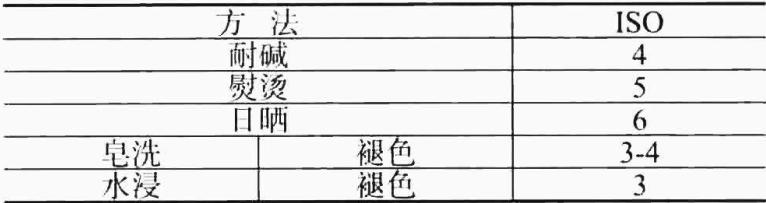 方 法 ISO
耐碱 4
熨烫 5
日晒 6
皂洗 褪色 3-4
水浸 褪色 3